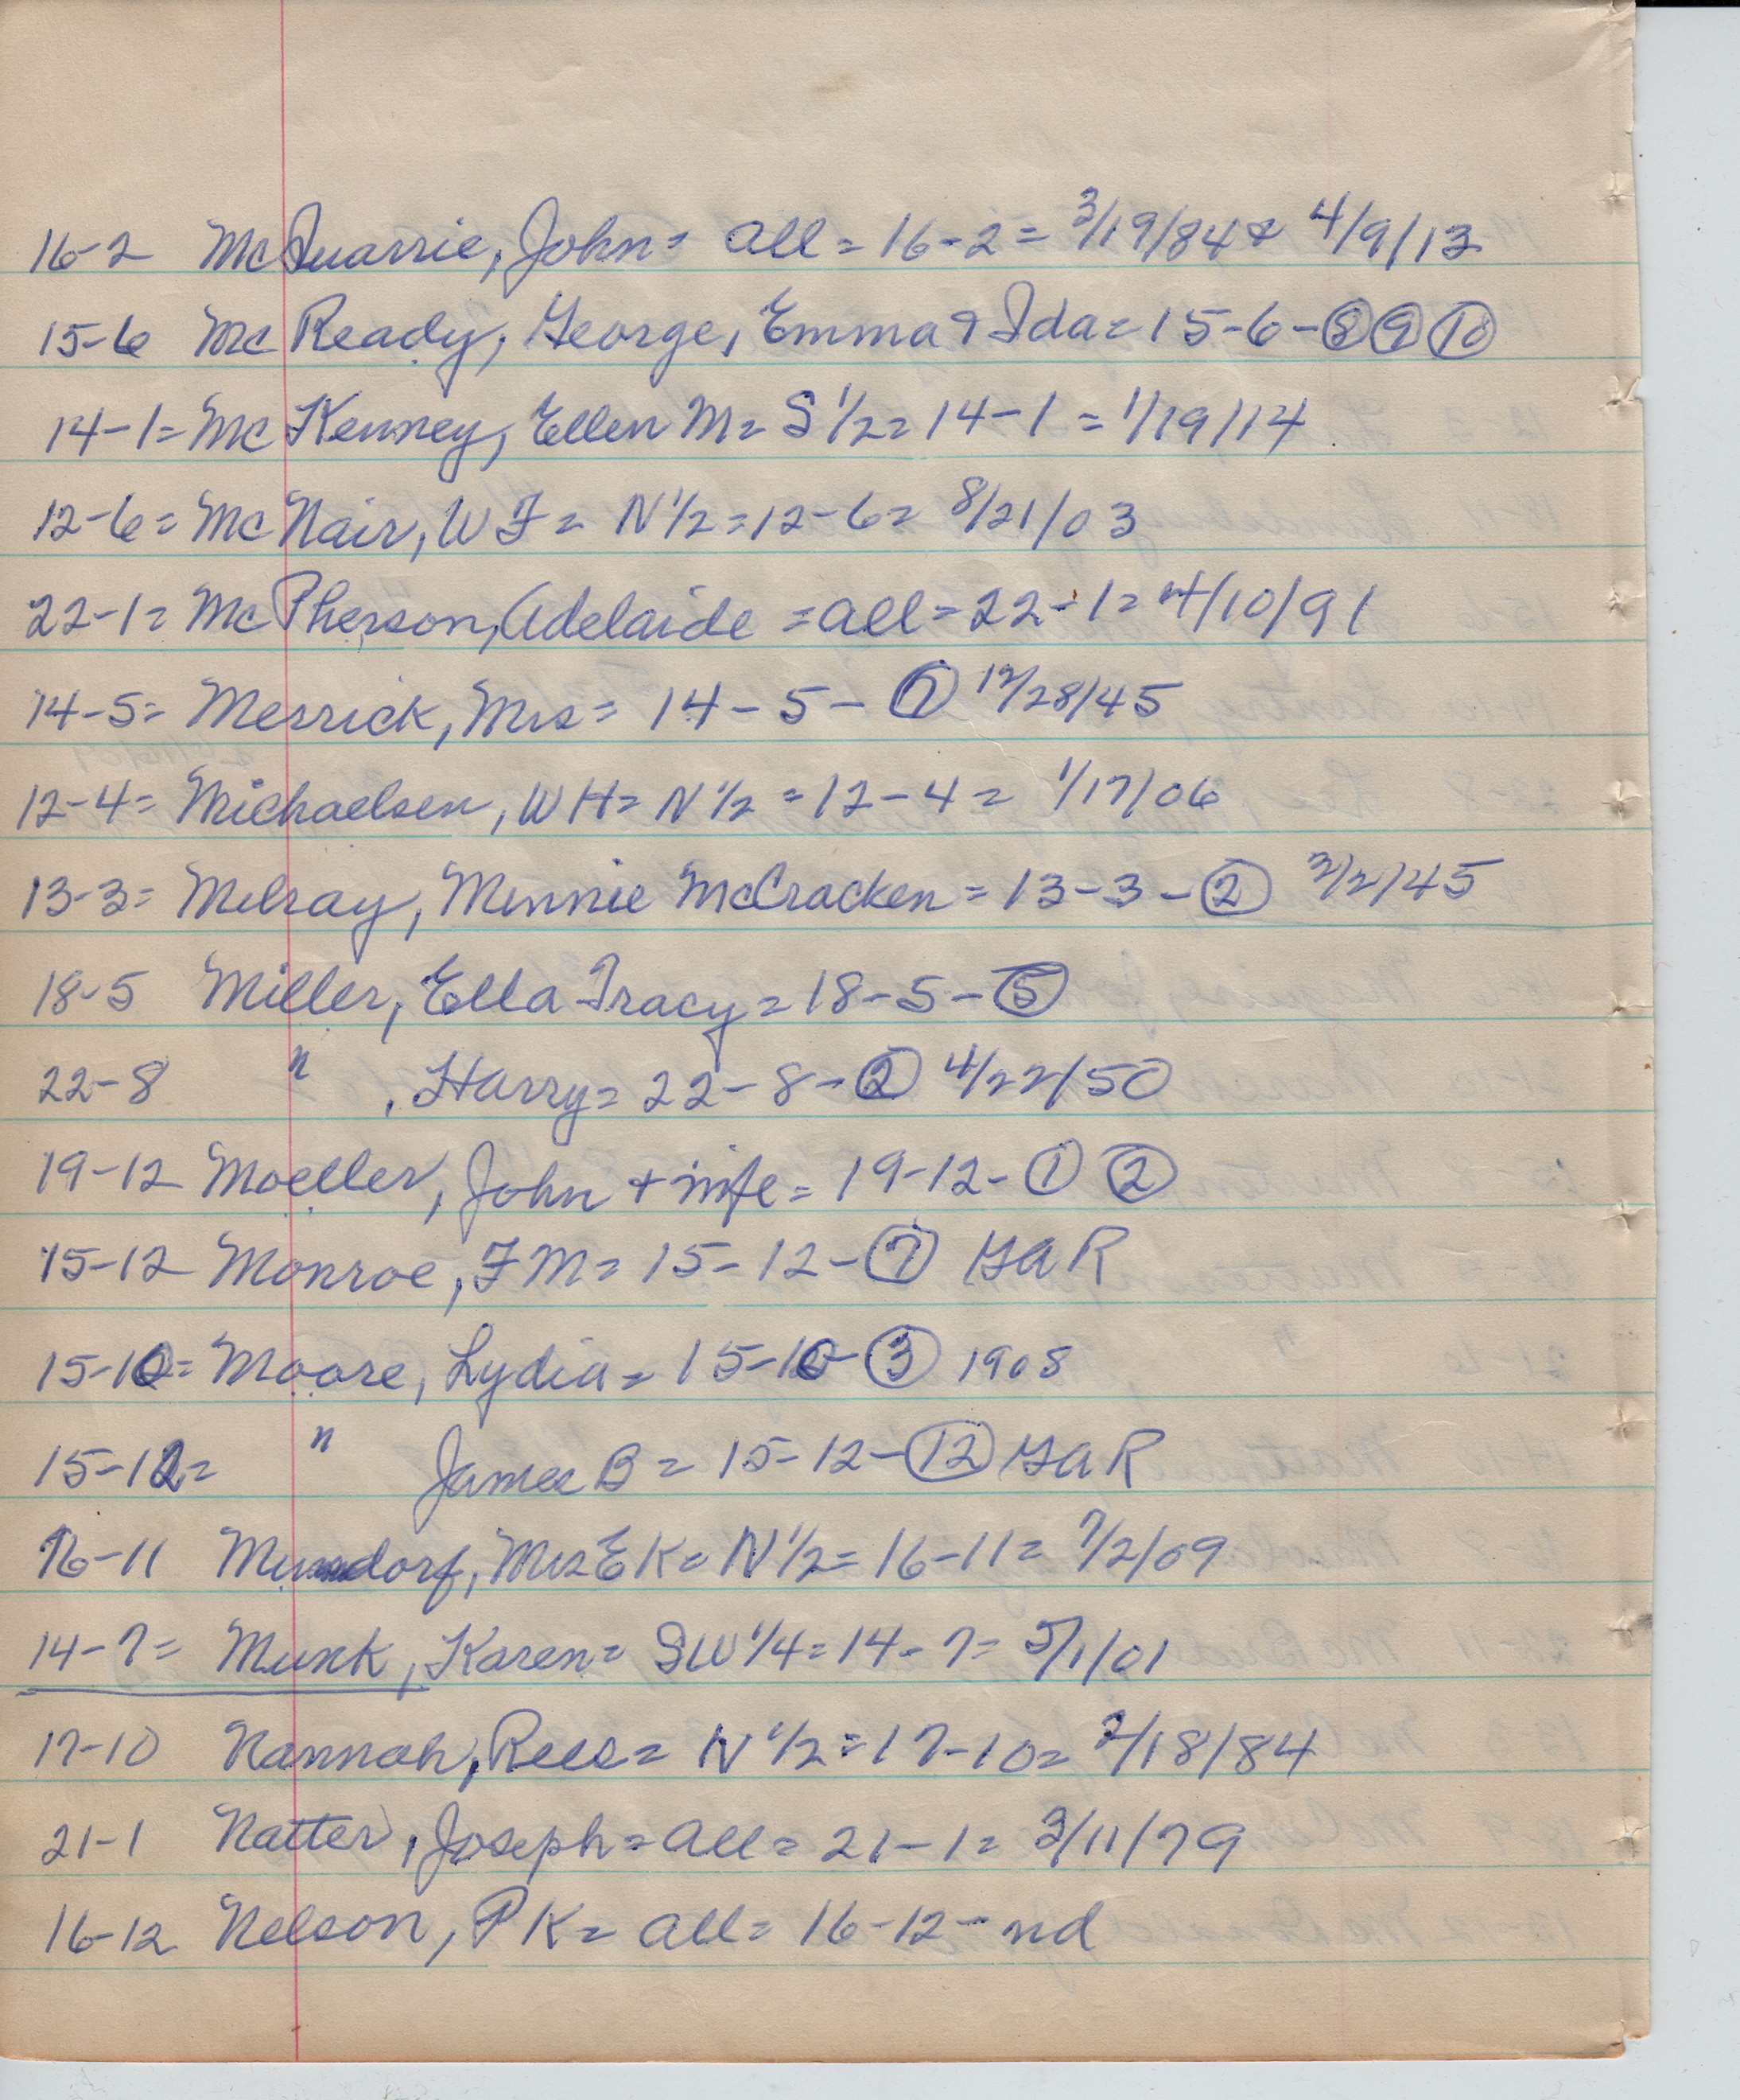 16-2 McQuarrie, John = all = 16-2 = 3/19/84 & 4/9/13
15-6 McReady, George, Emma & Ida = 15-6-⑧⑨⑩
14-1 = McKenney, Ellen M = S 1/2 = 14-1 = 1/19/14
12-6 = McNair, W F = N 1/2 = 12-6 = 8/21/03
22-1 = McPherson, Adelaide = all = 22-1 = 4/10/91
14-5 = Merrick, Mrs = 14-5-⑦ 12/28/45
12-4 = Michaelsen, W H = N 1/2 = 12-4 = 1/17/06
13-3 = Milray, Minnie McCracken = 13-3-② 3/2/45
18-5 Miller, Ella Tracy = 18-5-⑤
22-8 " , Harry = 22-8-② 4/22/50
19-12 Moeller, John + wife = 19-12-① ②
15-12 Monroe, F M = 15-12-⑦ GAR
15-10 = Moore, Lydia = 15-10-③ 1908
15-12 = " James B = 15-12-⑫ GAR
16-11 Mundorf, Mrs E K = N 1/2 = 16-11 = 7/2/09
14-7 = Munk, Karen = SW 1/4 = 14-7 = 5/1/01
17-10 Nannah, Rees = N 1/2 = 17-10 = 2/18/84
21-1 Natter, Joseph = all = 21-1 = 3/11/79
16-12 Nelson, P K = all = 16-12 - nd